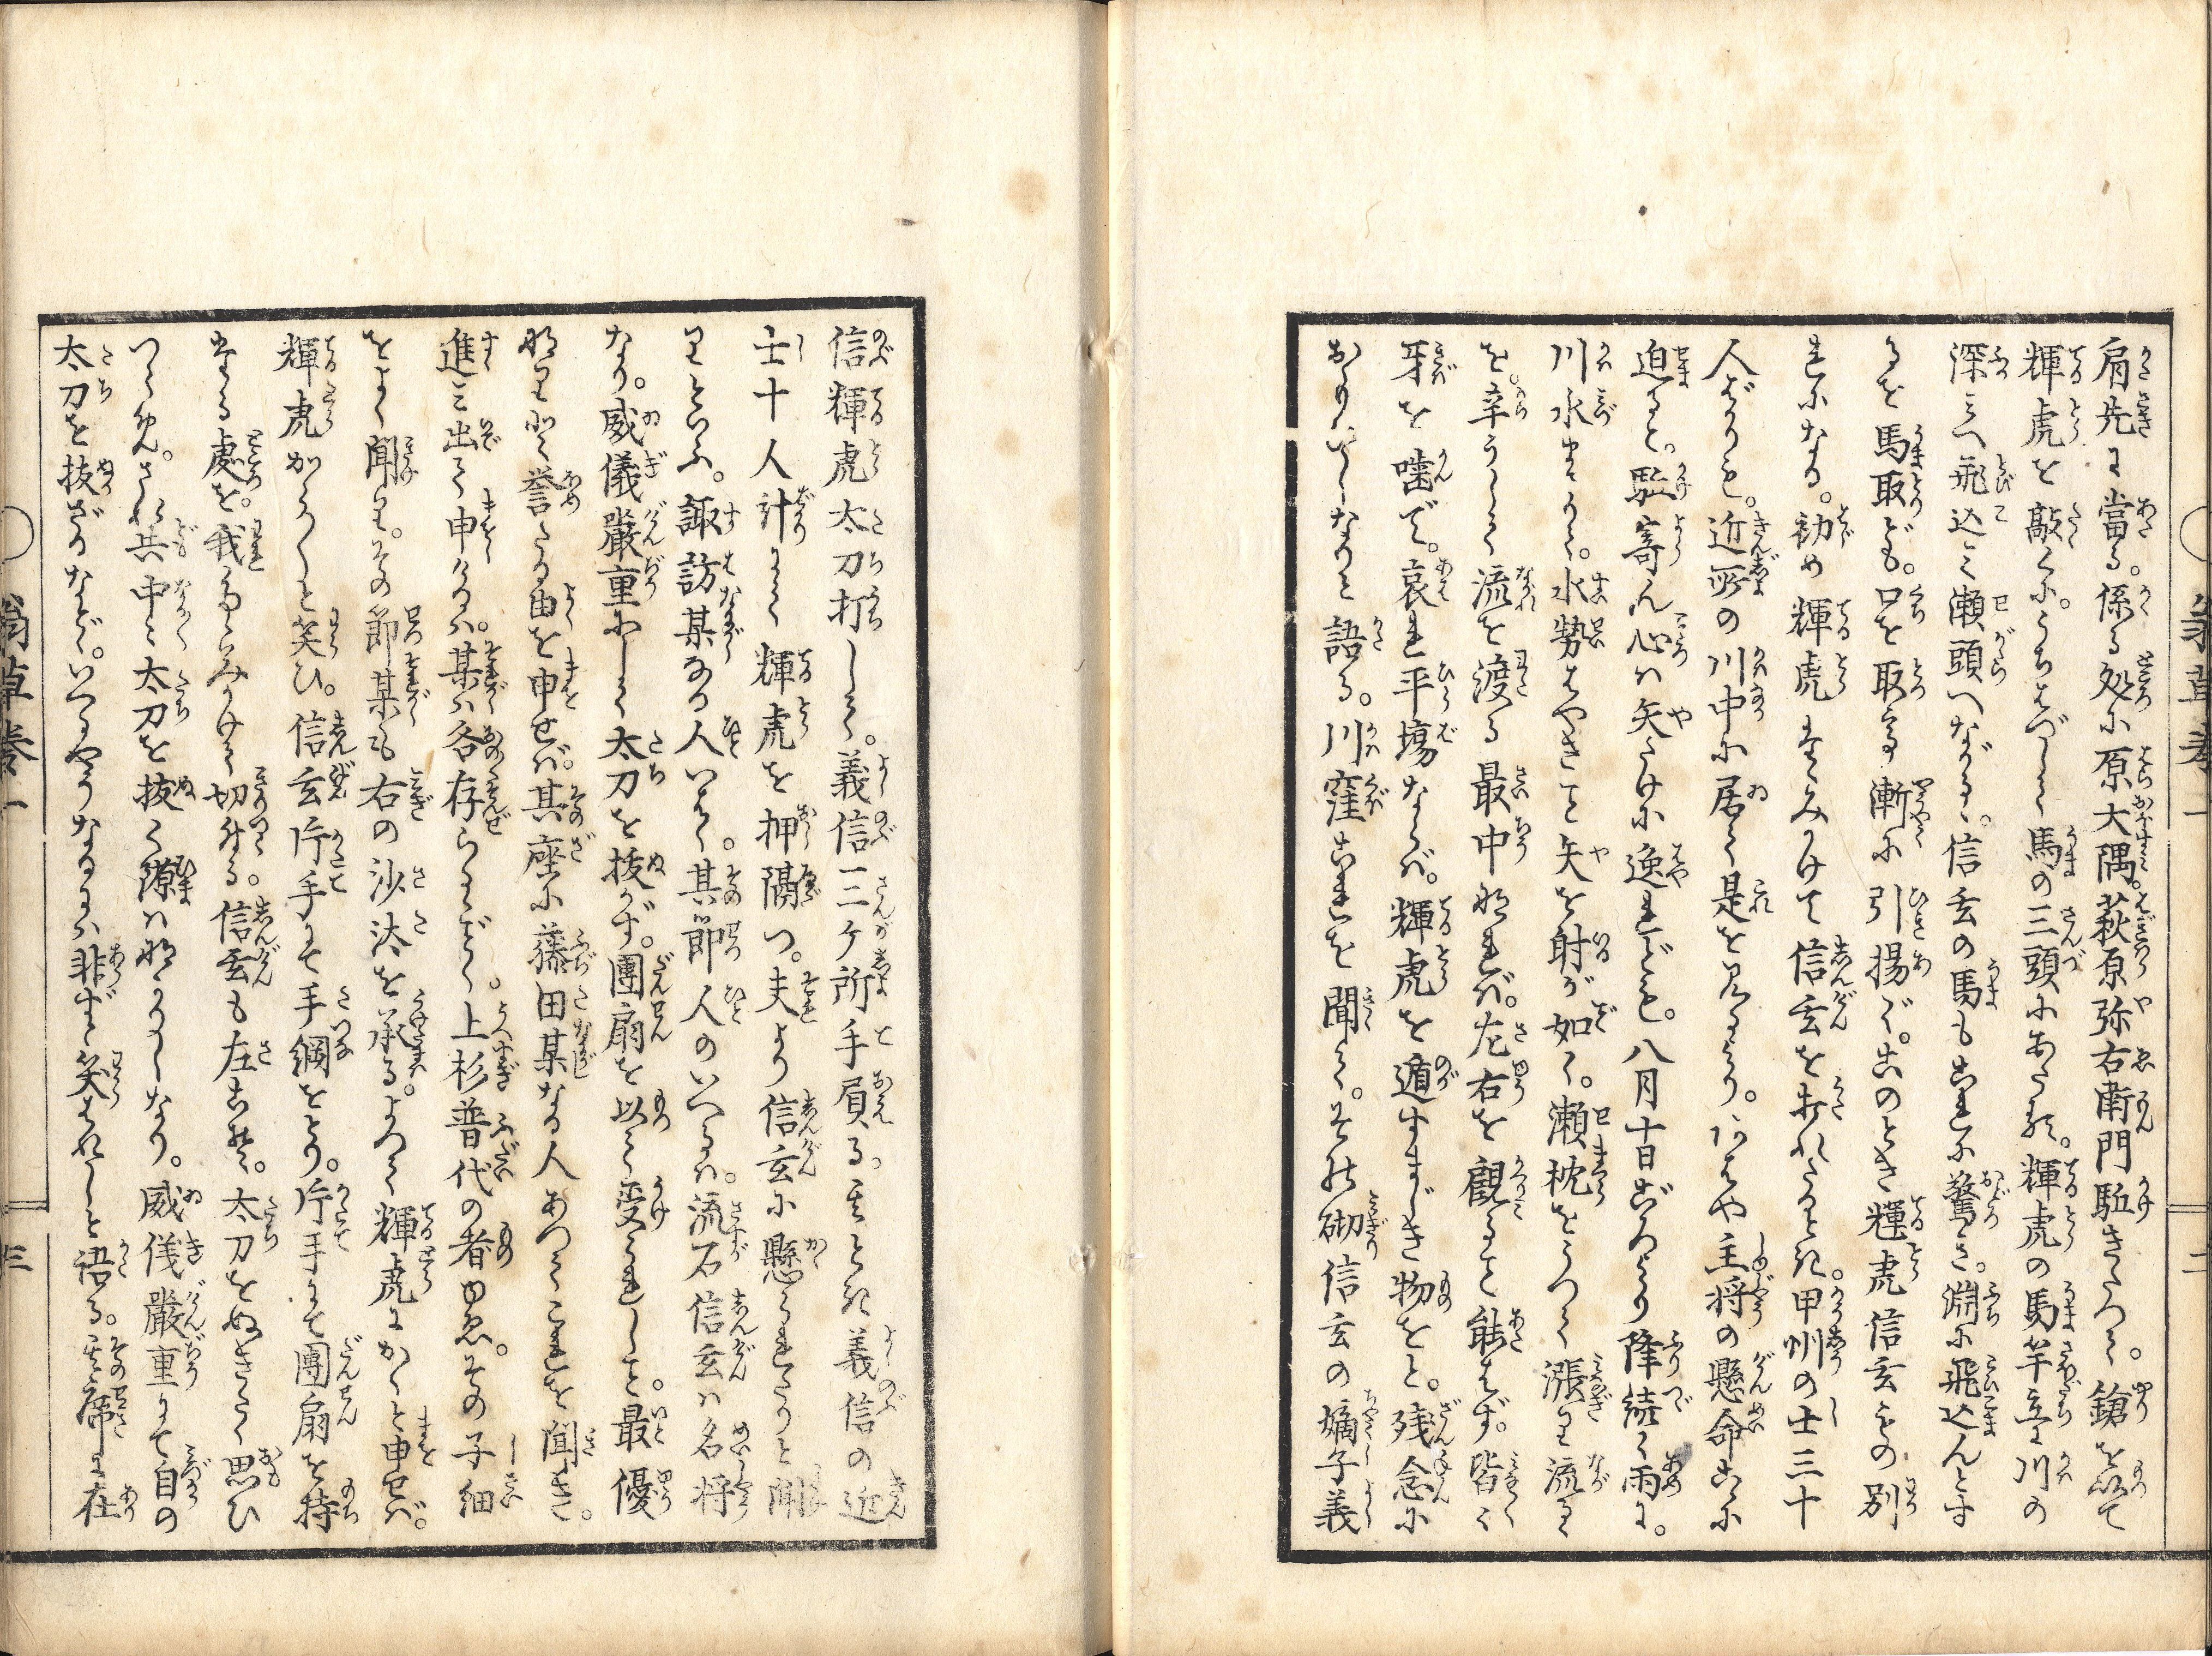 肩先に當る。係る処に原大隅。萩原弥右衛門駈きたつて。鎗を以て
輝虎を敲くに。うちはづして馬の三頭にあたる。輝虎の馬竿立に川の
深みへ飛込み瀬頭へながる。信玄の馬もこれに驚き。淵に飛込んとす
るを馬取ども。口を取て漸に引揚ぐ。このとき輝虎信玄との別
れになる。初め輝虎たゝみかけて信玄を打れたるとき。甲州の士三十
人ばかりも。近所の川中に居て是を見るより。すはや主将の懸命こゝに
迫ると。駈寄ん心は矢たけに逸れども。八月十日ごろより降続く雨に。
川水まさりて。水勢はやきこと矢を射が如く。瀬枕をうつて漲り流るゝ
を。辛うして流を渡る最中なれば。左右を観ること能はず。皆々
牙を噛で。哀れ平場ならば。輝虎を遁すまじき物をと。残念に
おもひしなりと語る。川窪これを聞て。その砌信玄の嫡子義
信輝虎太刀打して。義信三ケ所手屓る。其とき義信の近
士十人計にて輝虎を押隔つ。夫より信玄に懸られたりと聞
りといふ。諏訪某なる人いはく。其節人のいへるは。流石信玄は名将
なり。威儀嚴重にして太刀を抜かず。團扇を以て受られしこと。最優
なりとて誉たる由を申せば。其座に藤田某なる人あつてこれを聞き。
進み出て申けるは。某は各存らるごとく。上杉普代の者ゆゑ。その子細
をよく聞り。その節某も右の沙汰を承る。よつて輝虎にかくと申せば。
輝虎からからと笑ひ。信玄片手にて手綱をとり。片手にて團扇を持
たる處を。我たゝみかけて切付る。信玄も左こそ。太刀をぬきたく思ひ
つらめ。され共中々太刀を抜く隙はなかりしなり。威儀嚴重にて自の
太刀を抜ざるなどゝ。いへるやうなるには非ずと笑はれしと語る。其席に在
翁草巻一
二
三